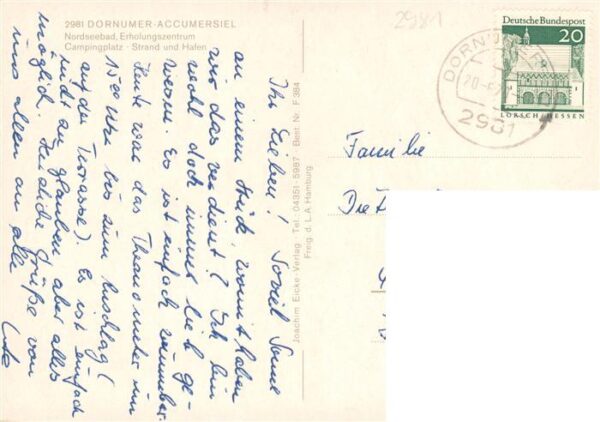 2981 DORNUMER-ACCUMERSIEL
Nordseebad, Erholungszentrum
Campingplatz · Strand und Hafen
2981
Deutsche Bundespost
20
LORSCH HESSEN
DORNUM
20.
2981
Ihr Lieben! Soviel Sonne
an einem Stück, womit haben
wir das verdient? Ich bin
wohl doch immer lieb ge-
wesen. Es ist einfach wunderbar.
Heute war das Thermometer um
15 00 Uhr bis zum Anschlag (
auf der Terrasse). Es ist einfach
nicht zu glauben aber alles
möglich. Herzliche Grüße von
uns allen an alle
Joachim Eicke-Verlag · Tel. 04351-5997 · Best. Nr. F 384
Freig. d. L.A. Hamburg
Familie